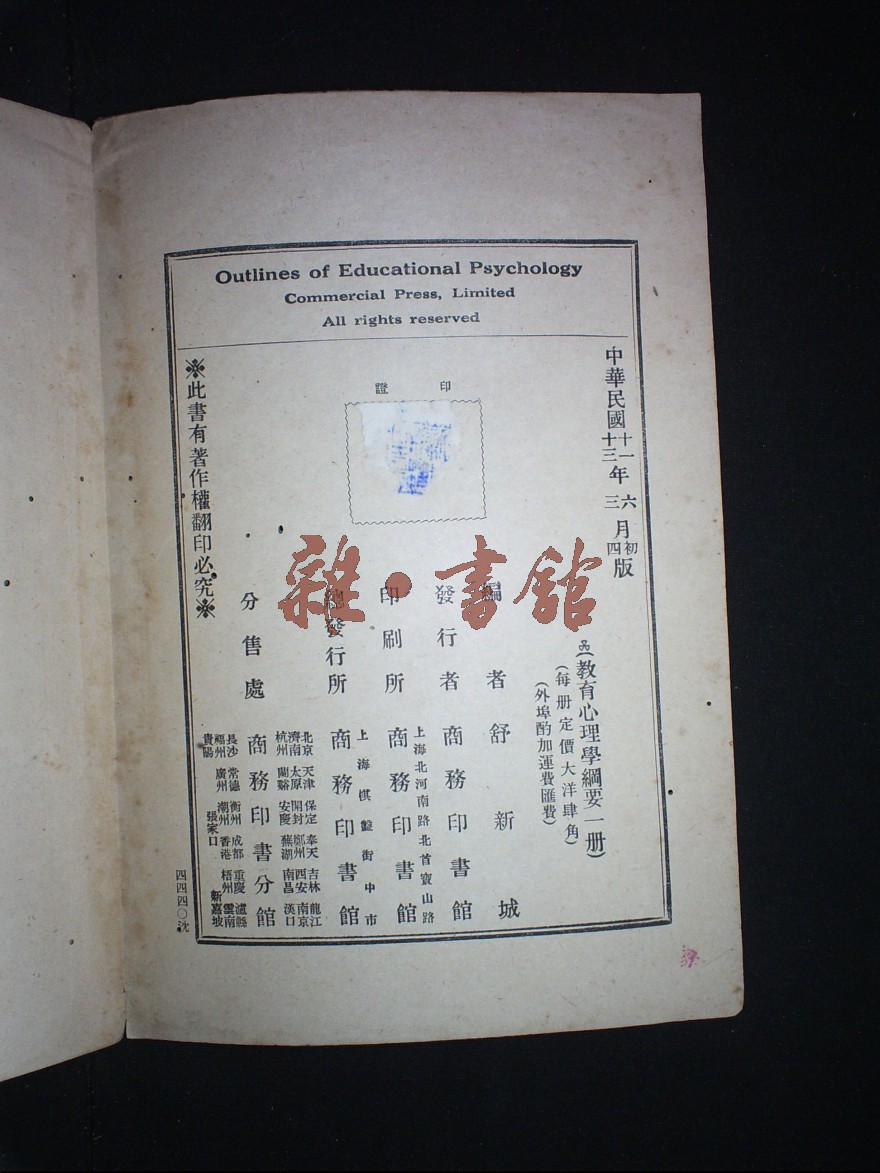 Outlines of Educational Psychology
Commercial Press, Limited
All rights reserved
中華民國十一年六月初版
十三年三月四版
(教育心理學綱要一册)
(每册定價大洋肆角)
(外埠酌加運費匯費)
印證
編者 舒新城
發行者 商務印書館
上海北河南路北首寶山路
印刷所 商務印書館
上海棋盤街中市
總發行所 商務印書館
北京 天津 保定 奉天 吉林 龍江
濟南 太原 開封 鄭州 西安 南京
杭州 蘭谿 安慶 蕪湖 南昌 漢口
分售處 商務印書分館
長沙 常德 衡州 成都 重慶 瀘縣
福州 廣州 潮州 香港 梧州 雲南
貴陽 張家口 新嘉坡
※此書有著作權翻印必究※
四四四〇沈
雜·書館